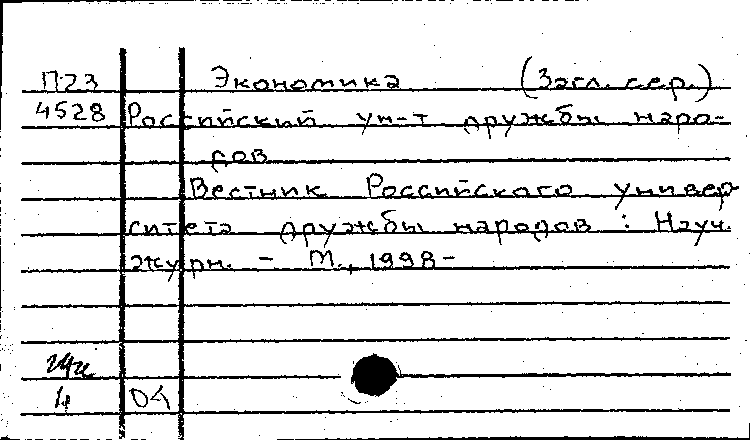 П23 Экономика (Загл. сер.)
4528 Российский ун-т дружбы наро-
дов
Вестник Российского универ
ситета дружбы народов : Науч.
журн. - М., 1998-
04